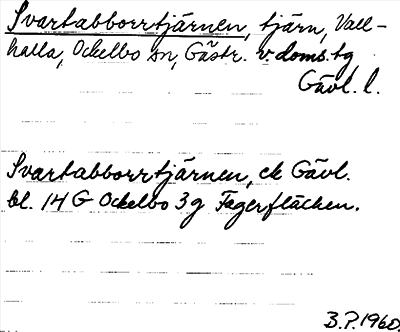 Svartabborrtjärnen, tjärn, Vall-
halla, Ockelbo sn, Gästr. v. doms. tg
Gävl. l.
Svartabborrtjärnen, ek Gävl.
bl. 14 G Ockelbo 3g Fagerfläcken.
B.P. 1960.